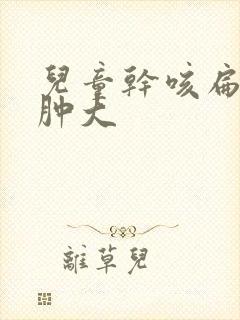 兒童幹咳扁
肿大
離草兒